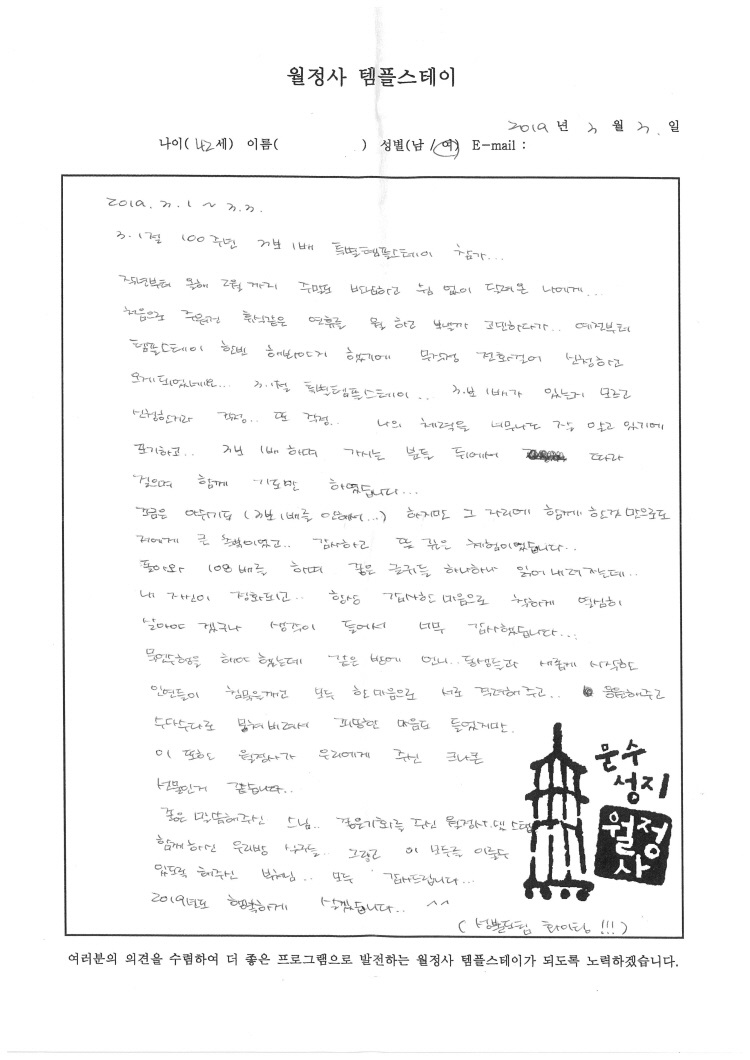 월정사 템플스테이
2019 년 3 월 3. 일
나이( 42세) 이름( ) 성별(남 / 여) E-mail :
2019. 3. 1 ~ 3.3.
3.1절 100주년 3보 1배 특별템플스테이 참가...
작년부터 올해 2월까지 주말도 반납하고 쉼 없이 달려온 나에게...
처음으로 주어진 휴식같은 연휴를 뭘 하고 보낼까 고민하다가.. 예전부터
템플스테이 한번 해봐야지 했기에 무작정 전화걸어 신청하고
오게되었네요... 3.1절 특별템플스테이.. 3보 1배가 있는지 모르고
신청한거라 걱정.. 또 걱정.. 나의 체력을 너무나도 잘 알고 있기에
포기하고.. 3보 1배 하며 가시는 분들 뒤에서 따라
걸으며 함께 기도만 하였습니다...
조금은 아쉽기도 (3보 1배를 안해서...) 하지만 그 자리에 함께 한것 만으로도
저에게 큰 축복이였고.. 감사하고 뜻 깊은 체험이였습니다..
돌아와 108배를 하며 좋은 글귀들 하나하나 읽어 내려 가는데..
내 자신이 정화되고.. 항상 감사한 마음으로 착하게 열심히
살아야 겠구나 생각이 들어서 너무 감사했습니다...
묵언수행을 해야 했는데 같은 방에 언니.. 동생들과 새롭게 시작한
인연들이 침묵을깨고 모두 한마음으로 서로 격려해주고.. 응원해주고
수다수다로 뭉쳐버려서 찌릿한 마음도 들었지만.
이 또한 월정사가 우리에게 주신 크나큰
선물인거 같습니다..
좋은 말씀해주신 스님.. 좋은기회를 주신 월정사.템.스텝
함께하신 우리방 식구들.. 그리고 이 모두를 이룰수
있도록 해주신 부처님.. 모두 감사드립니다...
2019년도 행복하게 살겠습니다.. ^^
( 성불도팀 화이팅 !!! )
문수
성지
월정
사
여러분의 의견을 수렴하여 더 좋은 프로그램으로 발전하는 월정사 템플스테이가 되도록 노력하겠습니다.